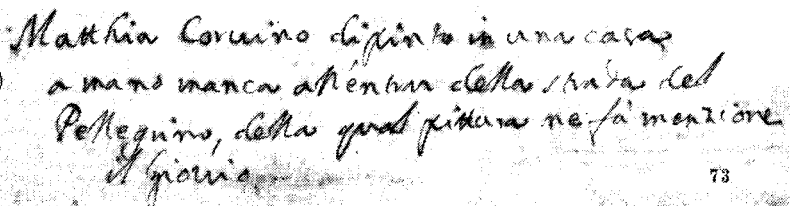 Matthia Coruino dipinto in una casa
a mano manca all'entrar della strada del
Pellegrino, della qual pittura ne fà menzione
il Giouio.
73